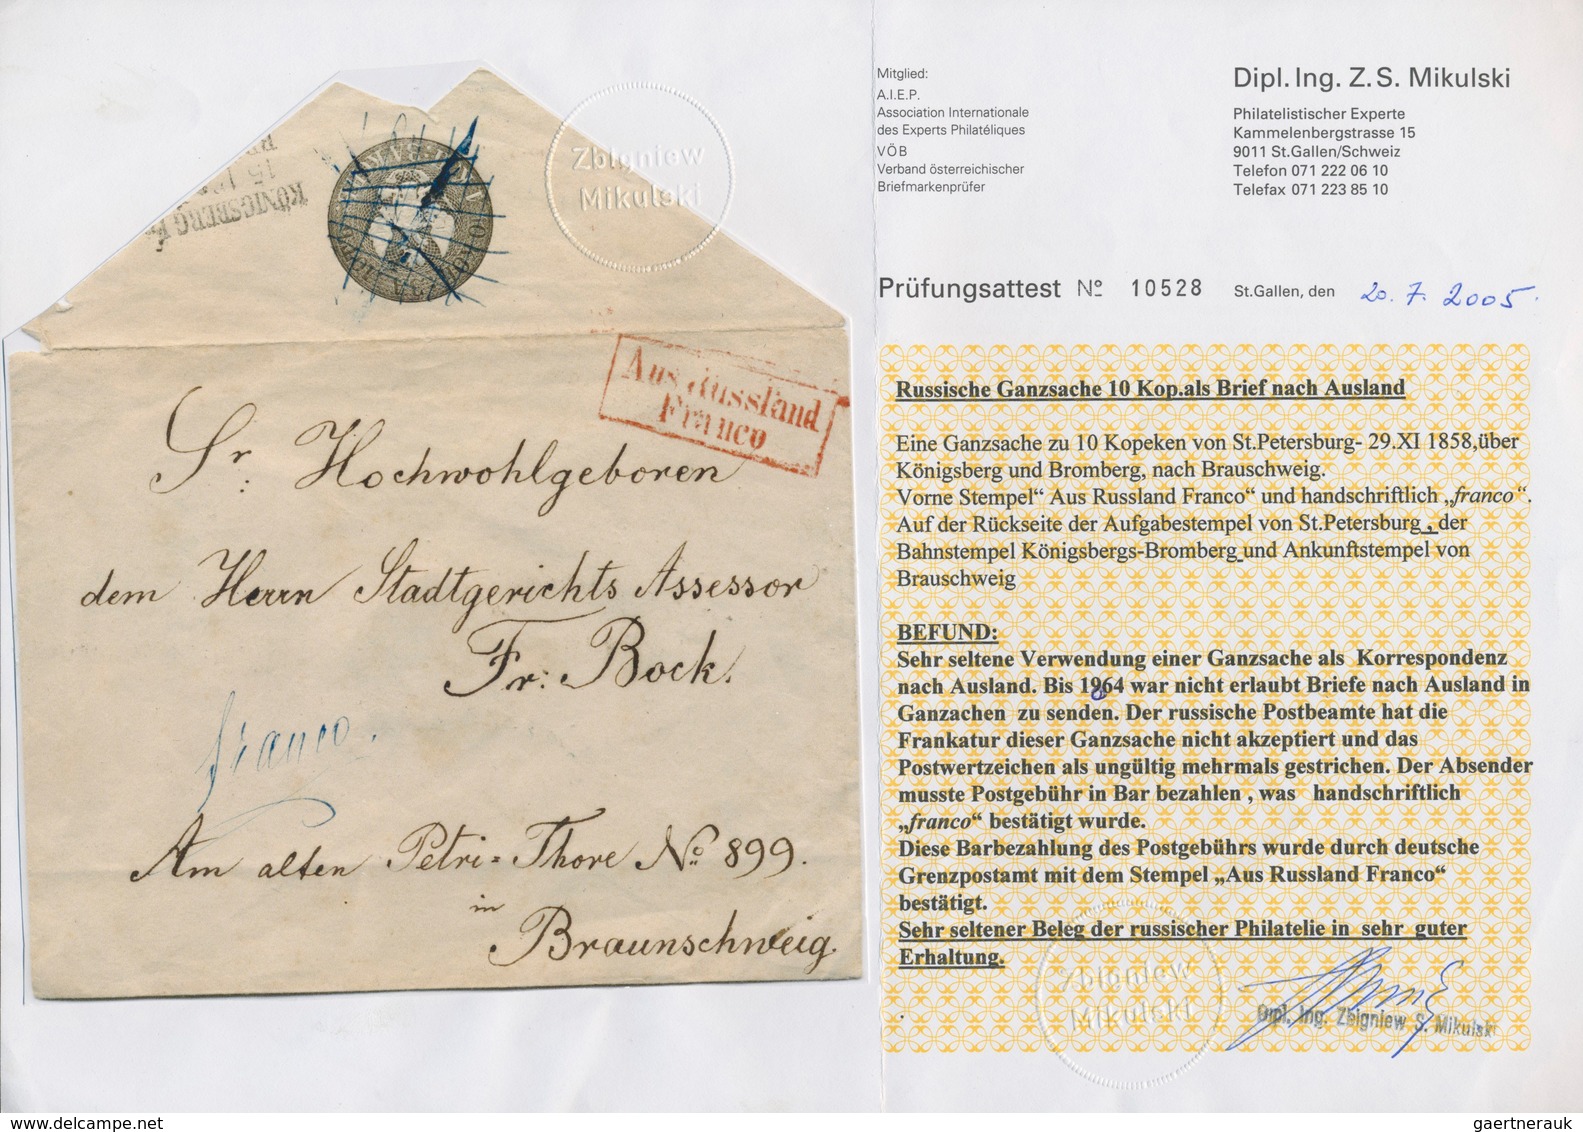 KÖNIGSBERG
15
Zbigniew
Mikulski
Aus Russland
Franco
Sr: Hochwohlgeboren
dem Herrn Stadtgerichts Assessor
Fr: Bock.
franco.
Am alten Petri=Thore No 899.
in
Braunschweig.
Mitglied:
A.I.E.P.
Association Internationale
des Experts Philatéliques
VÖB
Verband österreichischer
Briefmarkenprüfer
Dipl. Ing. Z. S. Mikulski
Philatelistischer Experte
Kammelenbergstrasse 15
9011 St.Gallen/Schweiz
Telefon 071 222 06 10
Telefax 071 223 85 10
Prüfungsattest № 10528 St.Gallen, den 20. 7. 2005.
Russische Ganzsache 10 Kop.als Brief nach Ausland
Eine Ganzsache zu 10 Kopeken von St.Petersburg- 29.XI 1858,über
Königsberg und Bromberg, nach Brauschweig.
Vorne Stempel“ Aus Russland Franco“ und handschriftlich „franco“.
Auf der Rückseite der Aufgabestempel von St.Petersburg , der
Bahnstempel Königsbergs-Bromberg und Ankunftstempel von
Brauschweig
BEFUND:
Sehr seltene Verwendung einer Ganzsache als Korrespondenz
nach Ausland. Bis 1864 war nicht erlaubt Briefe nach Ausland in
Ganzachen zu senden. Der russische Postbeamte hat die
Frankatur dieser Ganzsache nicht akzeptiert und das
Postwertzeichen als ungültig mehrmals gestrichen. Der Absender
musste Postgebühr in Bar bezahlen , was handschriftlich
„franco“ bestätigt wurde.
Diese Barbezahlung des Postgebührs wurde durch deutsche
Grenzpostamt mit dem Stempel „Aus Russland Franco“
bestätigt.
Sehr seltener Beleg der russischer Philatelie in sehr guter
Erhaltung.
Zbigniew
Mikulski
Dipl. Ing. Zbigniew S. Mikulski
gaertnerauk